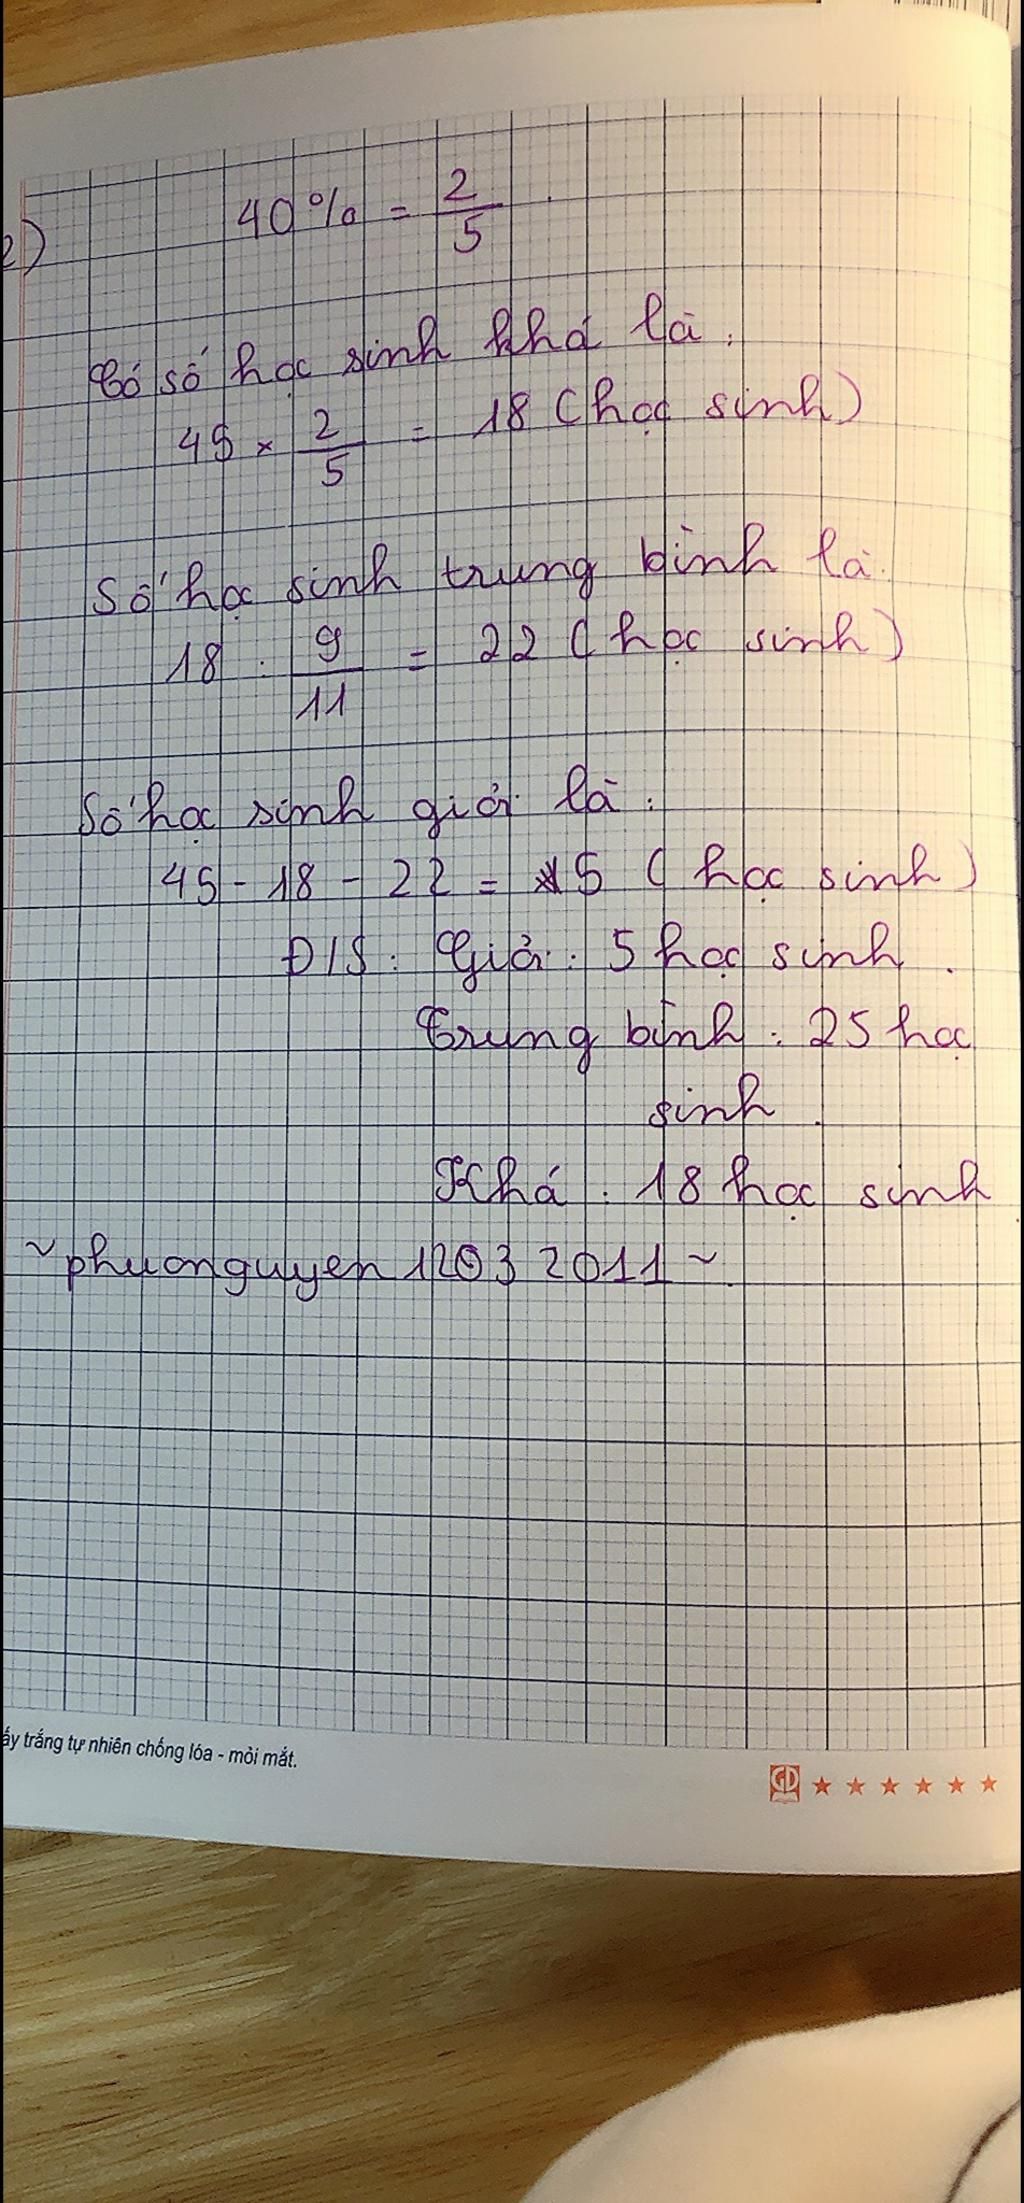 2) 40% = 2/5
Có số học sinh khá là:
45 × 2/5 = 18 (học sinh)
Số học sinh trung bình là:
18 : 9/11 = 22 (học sinh)
Số học sinh giỏi là:
45 - 18 - 22 = 5 (học sinh)
Đ/S: Giỏi: 5 học sinh.
Trung bình: 25 học
sinh.
Khá: 18 học sinh
~phuonguyen12032011~.
ấy trắng tự nhiên chống lóa - mỏi mắt.
GD